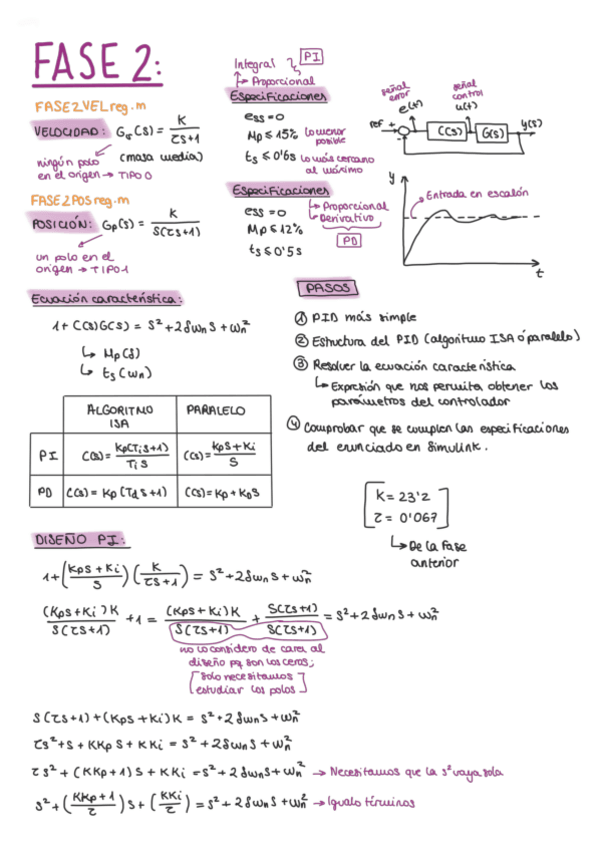 FASE 2:
FASE2VELreg.m
VELOCIDAD: Gσ(s) = K / τs+1
(masa media)
ningún polo
en el origen → TIPO 0
Integral PI
↳ Proporcional
Especificaciones
ess = 0
Mp ≤ 15% lo menor posible
ts ≤ 0'6s lo más cercano al máximo
señal error
e(t)
señal control
u(t)
ref + - C(s) G(s) y(s)
FASE2POSreg.m
POSICIÓN: Gp(s) = K / s(τs+1)
un polo en el
origen → TIPO 1
Especificaciones
ess = 0 → Proporcional
Mp ≤ 12% ↳ Derivativo
PD
ts ≤ 0'5s
y
Entrada en escalón
t
Ecuación característica:
1 + C(s)G(s) = s² + 2δωns + ωn²
↳ Mp(δ)
↳ ts(ωn)
ALGORITMO ISA PARALELO
PI C(s) = Kp(Tis+1) / Tis C(s) = Kps+Ki / s
PD C(s) = Kp(Tds+1) C(s) = Kp + KDs
PASOS
① PID más simple
② Estructura del PID (algoritmo ISA ó paralelo)
③ Resolver la ecuación característica
↳ Expresión que nos permita obtener los
parámetros del controlador
④ Comprobar que se cumplen las especificaciones
del enunciado en Simulink.
K = 23'2
τ = 0'067
↳ De la fase
anterior
DISEÑO PI:
1 + (Kps + Ki / s)(K / τs+1) = s² + 2δωns + ωn²
(Kps + Ki)K / s(τs+1) + 1 = (Kps + Ki)K / s(τs+1) + s(τs+1) / s(τs+1) = s² + 2δωns + ωn²
no lo considero de cara al
diseño pq son los ceros;
solo necesitamos
estudiar los polos
s(τs+1) + (Kps + Ki)K = s² + 2δωns + ωn²
τs² + s + KKps + KKi = s² + 2δωns + ωn²
τs² + (KKp+1)s + KKi = s² + 2δωns + ωn² → Necesitamos que la s² vaya sola
s² + (KKp+1 / τ)s + (KKi / τ) = s² + 2δωns + ωn² → Igualo términos